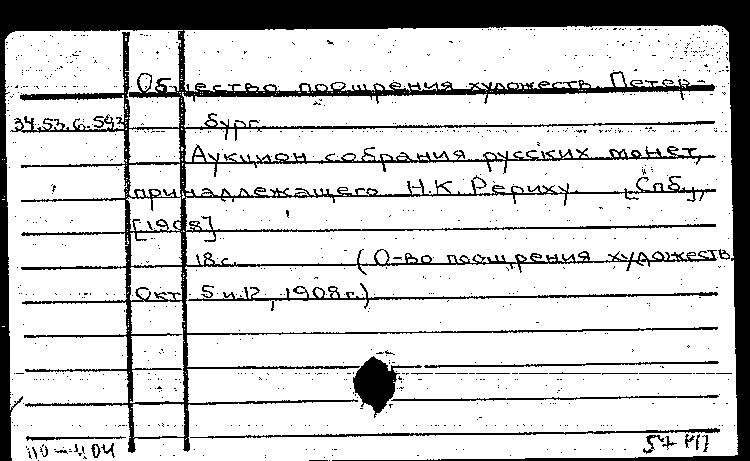 Общество поощрения художеств. Петер-
34.53.6.593 бург.
Аукцион собрания русских монет,
принадлежащего Н.К. Рериху. [Спб.],
[1908]
18 с. (О-во поощрения художеств.
Окт. 5 и 12, 1908 г.)